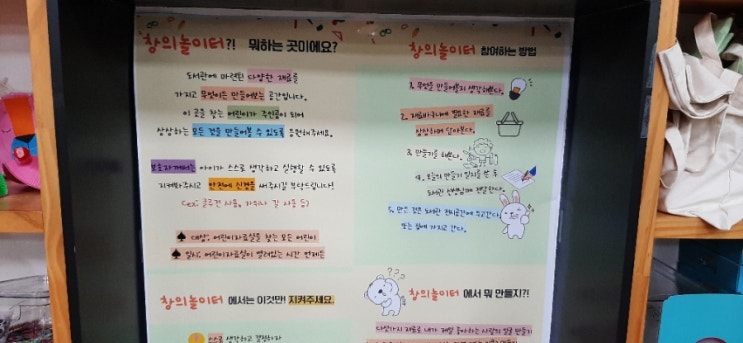 창의놀이터?! 뭐하는 곳이에요?
도서관에 마련된 다양한 재료를
가지고 무엇이든 만들어보는 공간입니다.
이 곳을 찾는 어린이가 주인공이 되어
상상하는 모든 것을 만들어볼 수 있도록 응원해주세요.
보호자께서는 아이가 스스로 생각하고 실행할 수 있도록
지켜봐주시고 안전에 신경을 써주시길 부탁드립니다!
(ex: 글루건 사용, 가위나 칼 사용 등)
♠ 대상: 어린이자료실을 찾는 모든 어린이
♠ 일시: 어린이자료실이 열려있는 시간 언제든
창의놀이터 참여하는 방법
1. 무엇을 만들어볼지 생각해본다.
2. 재료바구니에 필요한 재료를
상상하며 담아본다.
3. 만들기를 해본다.
4. 오늘의 만들기 일지를 쓴 후
도서관 선생님께 전달한다.
5. 만든 것은 도서관 전시공간에 두고간다
또는 집에 가지고 간다.
창의놀이터 에서는 이것만! 지켜주세요.
스스로 생각하고 결정하자
창의놀이터 에서 뭐 만들지?!
다양한가지 재료로 내가 제일 좋아하는 사람의 얼굴 만들기